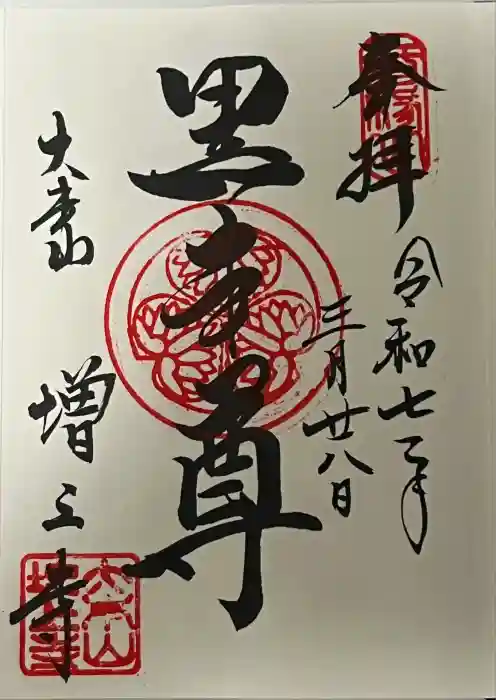 奉拝
令和七年
三月廿八日
黒本尊
大本山
増上寺